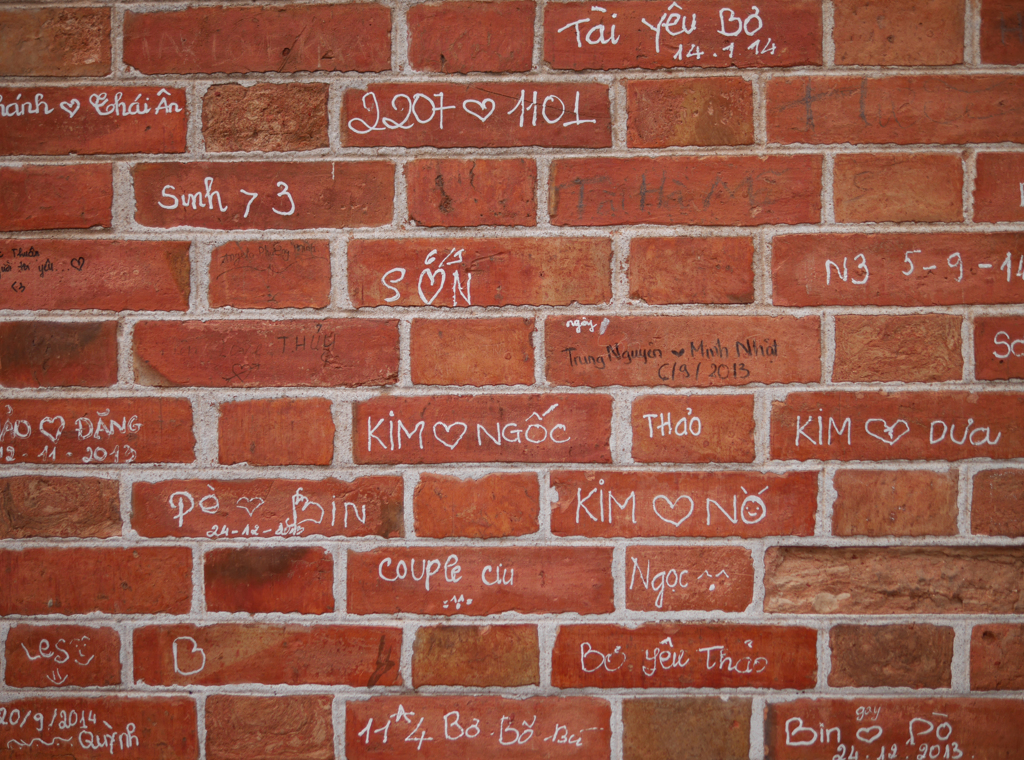 Tài yêu Bỏ
14.1.14
hánh ♡ Thái Ân
2207 ♡ 1101
Sunh > 3
SƠN
N3 5-9-14
THỦY
ngày
Trung Nguyên ♥ Minh Nhật
6/9/2013
ẢO ♡ ĐĂNG
12-11-2013
KIM ♡ NGỐC
THẢO
KIM ♡ DƯA
Pè ♡ BIN
24-12-2013
KIM ♡ NỜ
couple ciu
Ngọc ^^
Les
B
Bỏ yêu Thảo
20/9/2014
Quỳnh
11A4 Bỏ Bố
gay
Bin ♡ Pò
24.12.2013